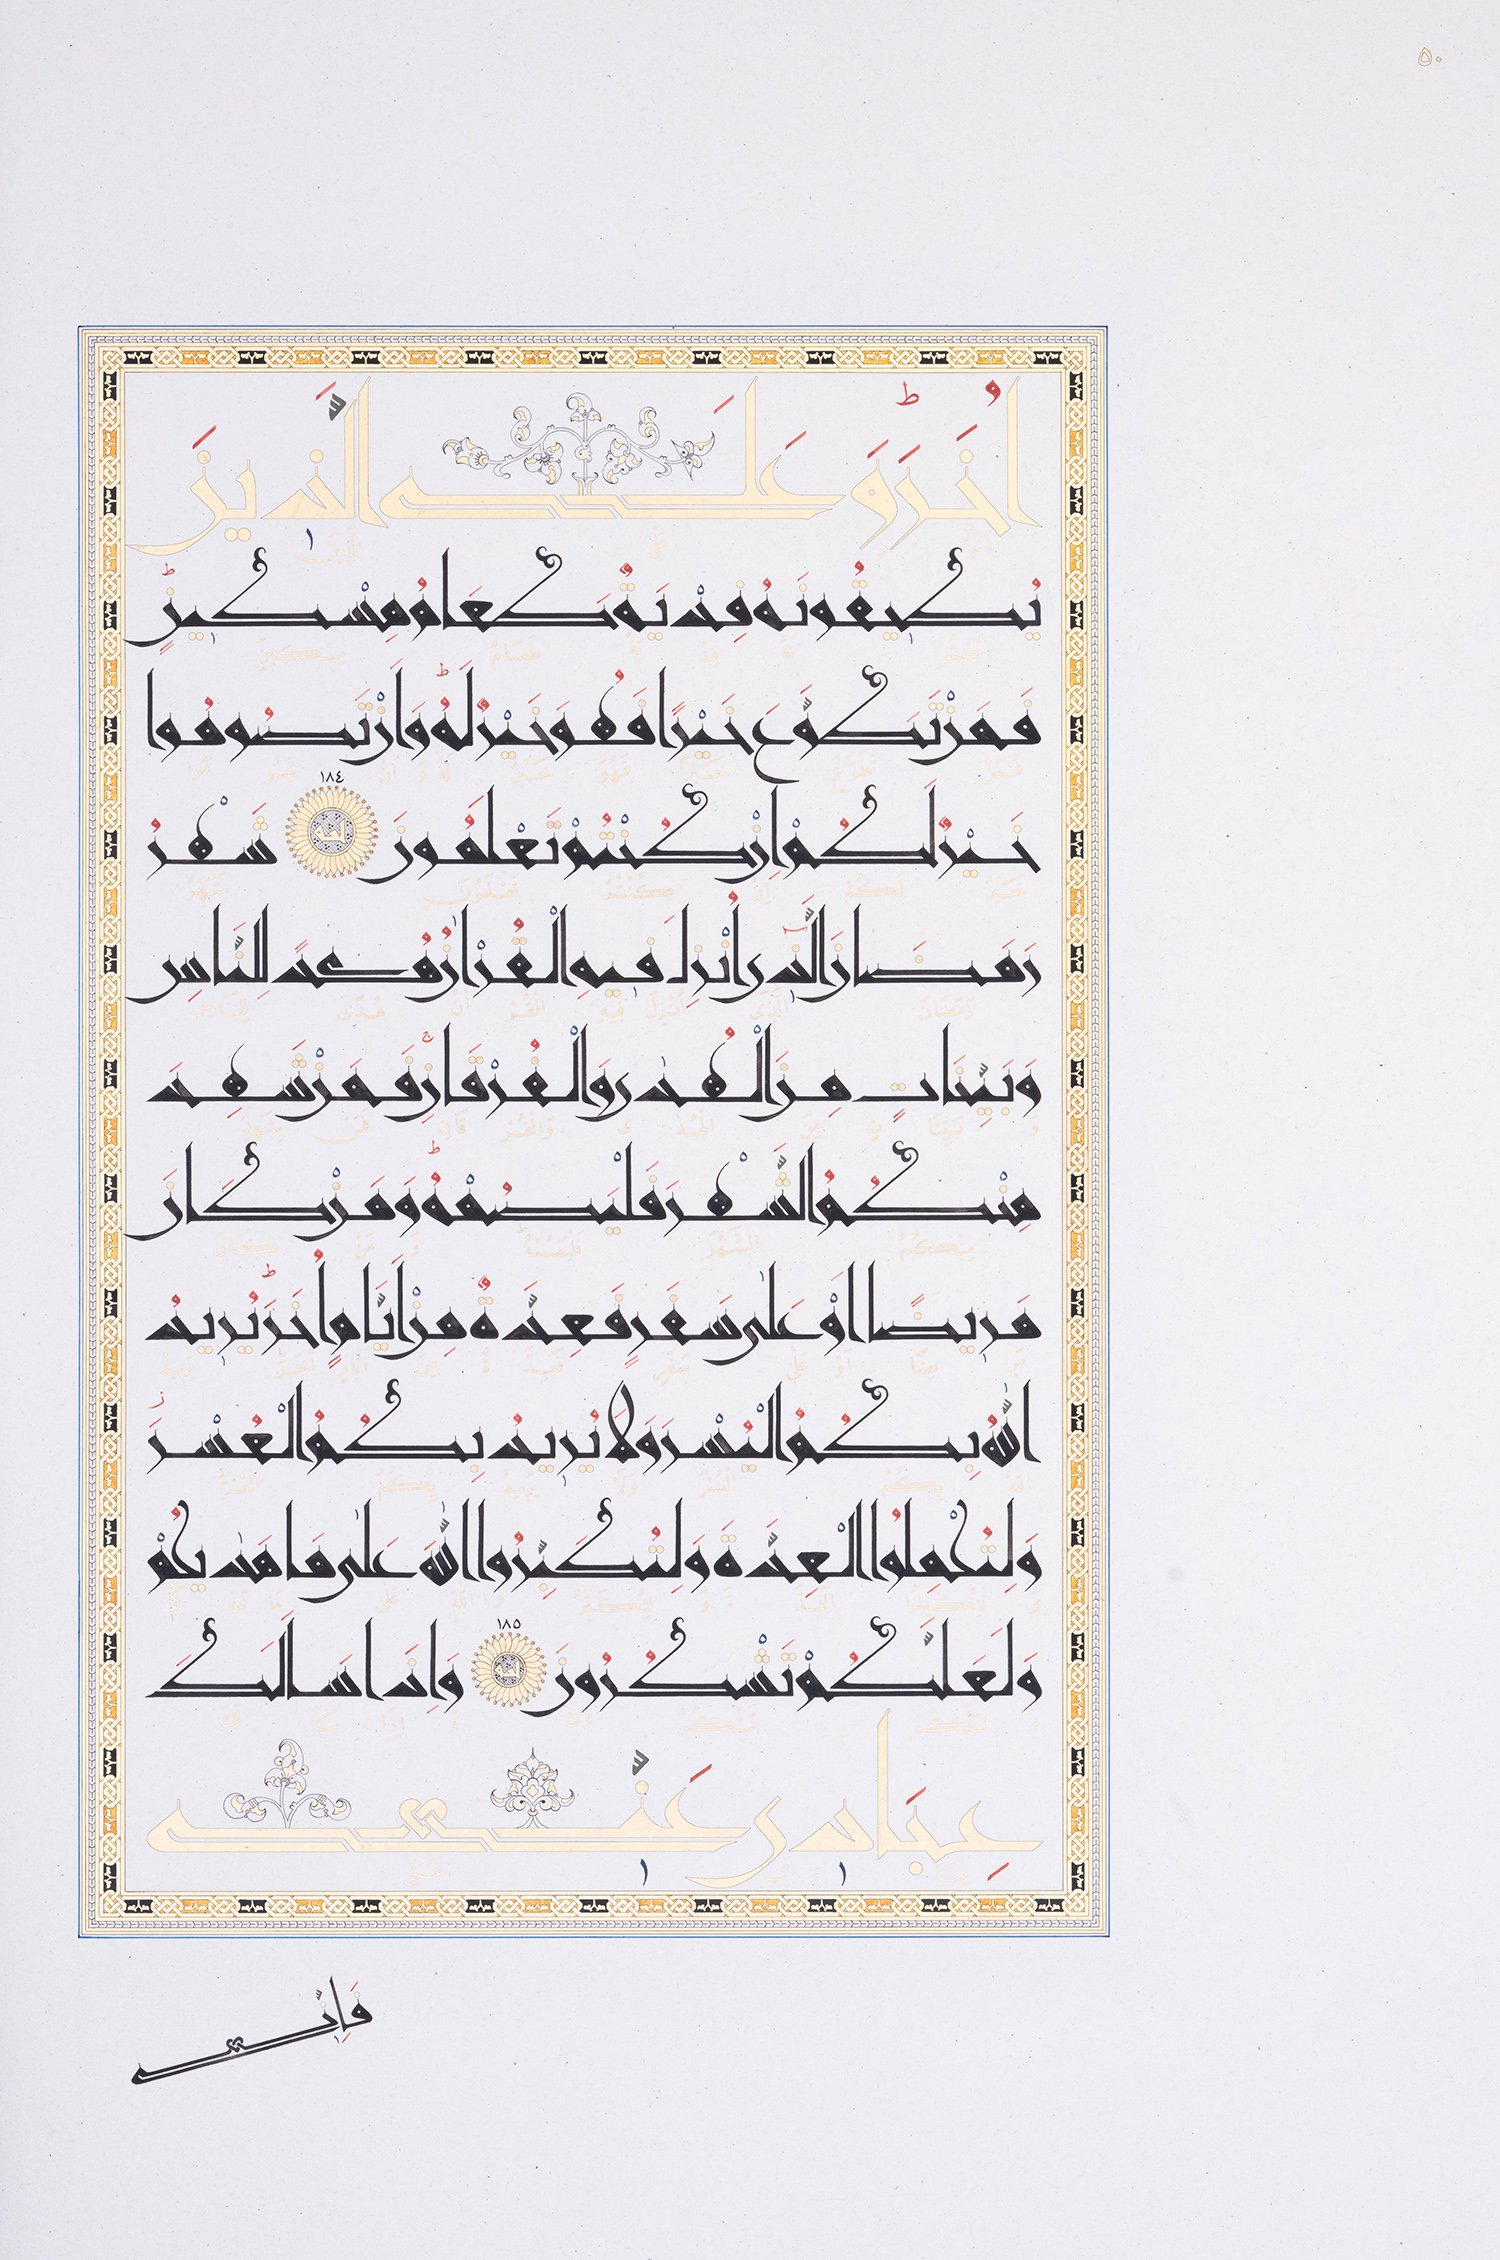 ٥٠
اُخَرَ وَعَلَى الَّذِينَ
يُطِيقُونَهُ فِدْيَةٌ طَعَامُ مِسْكِينٍ
فَمَنْ تَطَوَّعَ خَيْرًا فَهُوَ خَيْرٌ لَهُ وَاَنْ تَصُومُوا
خَيْرٌ لَكُمْ اِنْ كُنْتُمْ تَعْلَمُونَ ١٨٤ شَهْرُ
رَمَضَانَ الَّذِى اُنْزِلَ فِيهِ الْقُرْاٰنُ هُدًى لِلنَّاسِ
وَبَيِّنَاتٍ مِنَ الْهُدٰى وَالْفُرْقَانِ فَمَنْ شَهِدَ
مِنْكُمُ الشَّهْرَ فَلْيَصُمْهُ وَمَنْ كَانَ
مَرِيضًا اَوْ عَلٰى سَفَرٍ فَعِدَّةٌ مِنْ اَيَّامٍ اُخَرَ يُرِيدُ
اللّٰهُ بِكُمُ الْيُسْرَ وَلَا يُرِيدُ بِكُمُ الْعُسْرَ
وَلِتُكْمِلُوا الْعِدَّةَ وَلِتُكَبِّرُوا اللّٰهَ عَلٰى مَا هَدٰيكُمْ
وَلَعَلَّكُمْ تَشْكُرُونَ ١٨٥ وَاِذَا سَاَلَكَ
عِبَادِى عَنِّى
فَاِنِّى